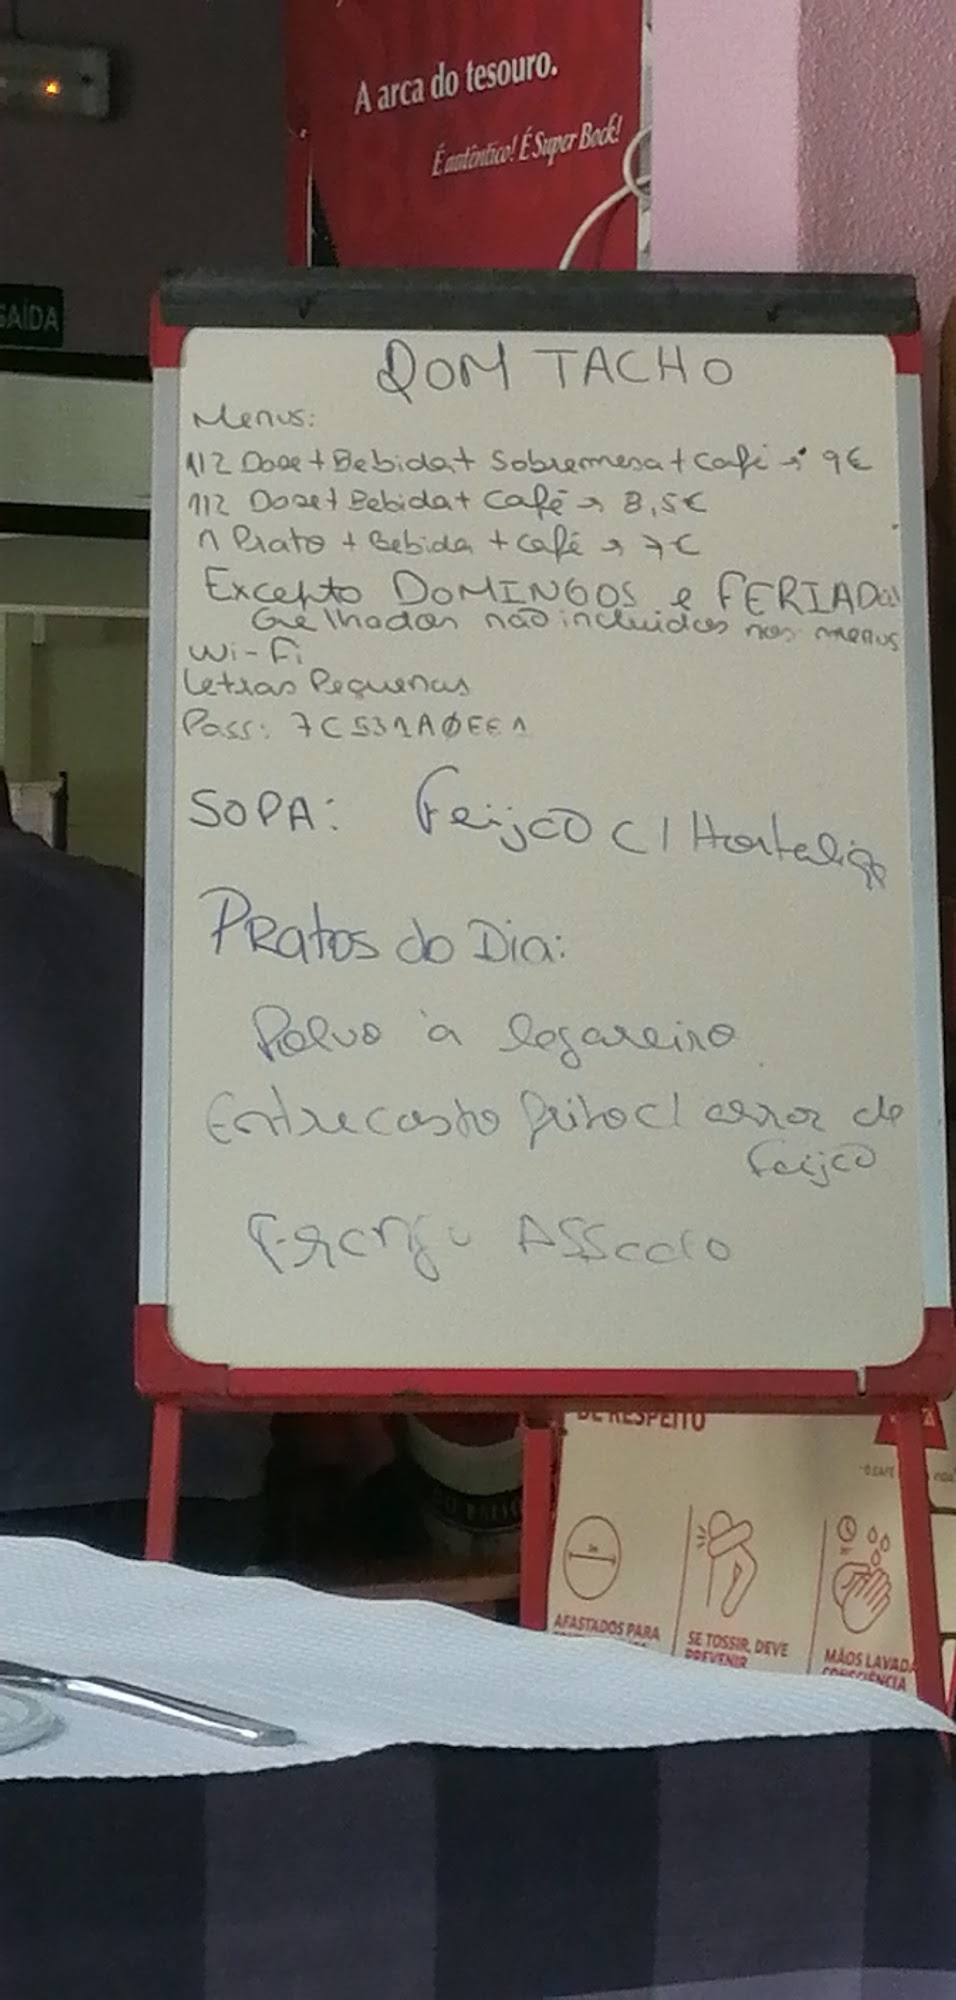 A arca do tesouro.
É autêntico! É Super Bock!
SAÍDA
DOM TACHO
Menus:
1/2 Dose + Bebida + Sobremesa + Café → 9€
1/2 Dose + Bebida + Café → 8,5€
1 Prato + Bebida + Café → 7€
Excepto DOMINGOS e FERIADOS
Grelhados não incluidos nos menus
Wi-Fi
Letras Pequenas
Pass: 7C531AØEE1
SOPA: Feijão C/ Hortaliça
PRatos do Dia:
Polvo à lagareiro
Entrecosto frito c/ arroz de
Feijão
Frango ASSado
DE RESPEITO
AFASTADOS PARA
SE TOSSIR, DEVE
PREVENIR
MÃOS LAVADA
CONSCIÊNCIA